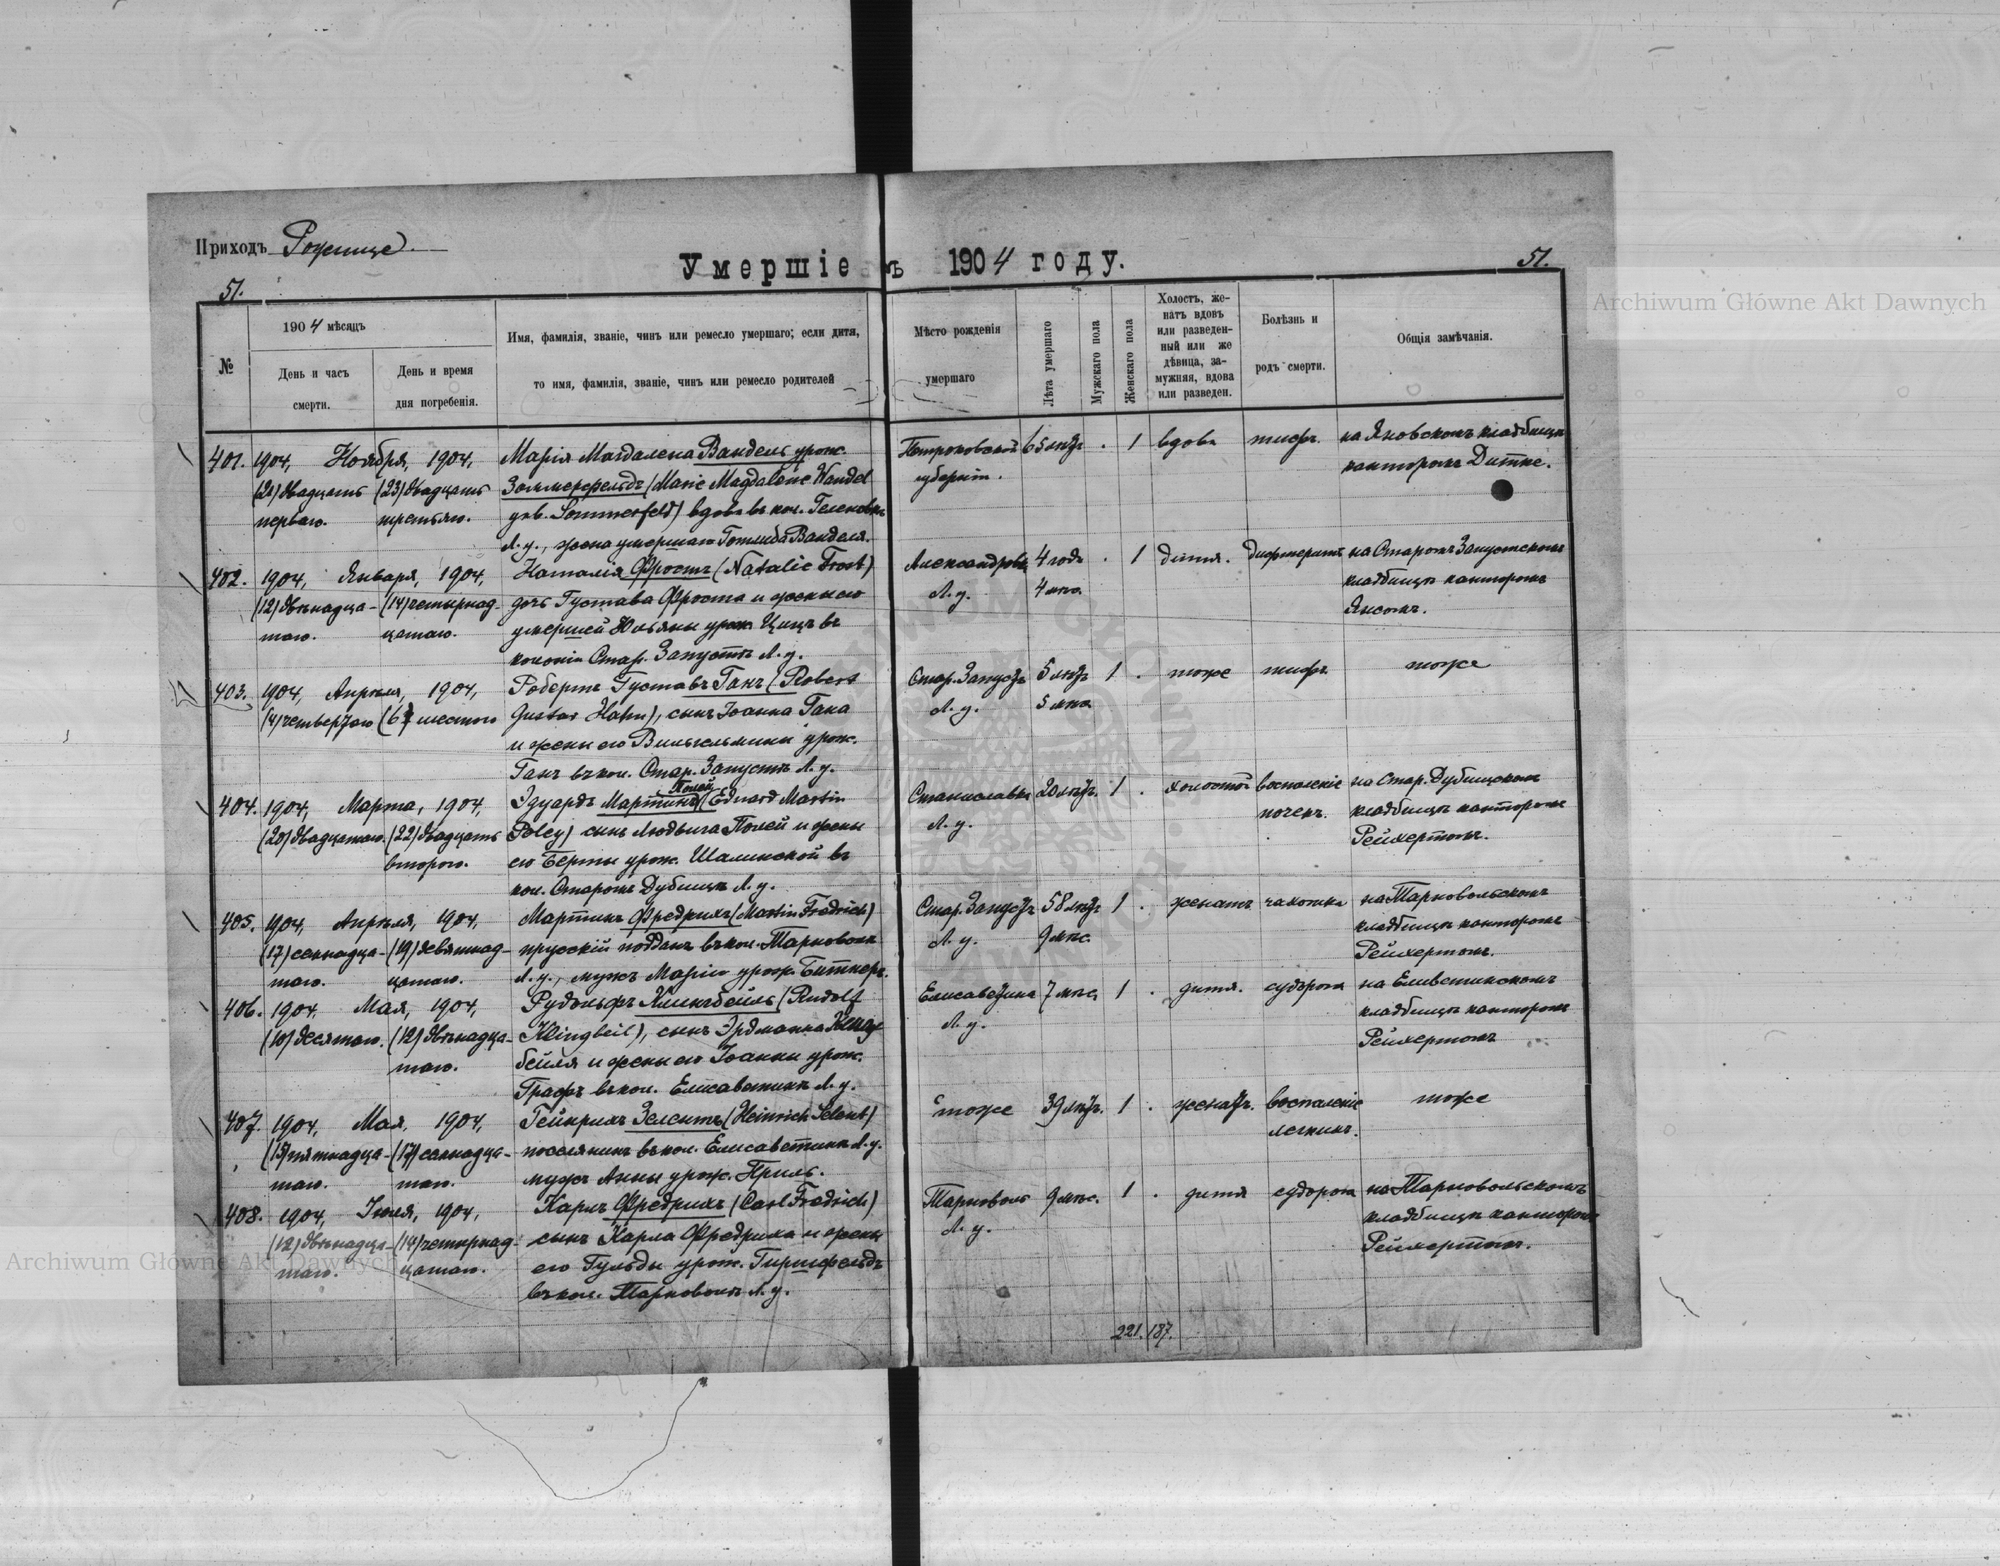 Приходъ Рожище.
Умершіе въ 1904 году.
51.
51.
№
1904 мѣсяцъ
День и часъ
смерти.
День и время
дня погребенія.
Имя, фамилія, званіе, чинъ или ремесло умершаго; если дитя,
то имя, фамилія, званіе, чинъ или ремесло родителей
Мѣсто рожденія
умершаго
Лѣта умершаго
Мужскаго пола
Женскаго пола
Холостъ, же-
натъ вдовъ
или разведен-
ный или же
дѣвица, за-
мужняя, вдова
или разведен.
Болѣзнь и
родъ смерти.
Общія замѣчанія.
401. 1904, Ноября, 1904, Марія Магдалена Вандель урож. Петроковской 65 лѣтъ . 1 вдова тифъ. на Яновскомъ кладбищѣ
(21) двадцать (23) двадцать Зоммерфельдъ (Marie Magdalene Wandel губерніи. канторомъ Дитке.
перваго. третьяго. geb. Sommerfeld) вдова въ кол. Геленовкѣ
Л. у., жена умершаго Готлиба Ванделя.
402. 1904, Января, 1904, Наталія Фростъ (Natalie Frost) Александровка 4 года . 1 дитя. дифтеритъ на Старомъ Запустскомъ
(12) двѣнадца- (14) четырнад- дочь Густава Фроста и жены его Л. у. 4 мѣс. кладбищѣ канторомъ
таго. цатаго. умершей Юльяны урож. Цицъ въ
колоніи Стар. Запустѣ Л. у.
403. 1904, Апрѣля, 1904, Робертъ Густавъ Ганъ (Robert Стар. Запустъ 5 лѣтъ 1 . тоже тифъ. тоже
(4) четвертаго (6) шестого Gustav Hahn), сынъ Іоанна Гана Л. у. 5 мѣс.
и жены его Вильгельмины урож.
Ганъ въ кол. Стар. Запустѣ Л. у.
Полей
404. 1904, Марта, 1904, Эдуардъ Мартинъ (Eduard Martin Станиславка 20 лѣтъ. 1 . холостъ воспаленіе на Стар. Дубищскомъ
(20) двадцатаго. (22) двадцать Poley) сынъ Людвига Полей и жены Л. у. почекъ. кладбищѣ канторомъ
второго. его Берты урож. Шалинской въ Рейхертомъ.
кол. Старомъ Дубищѣ Л. у.
405. 1904, Апрѣля, 1904, Мартинъ Фредрихъ (Martin Fredrich) Стар. Запустъ 58 лѣтъ 1 . женатъ чахотка на Тарновольскомъ
(17) семнадца- (19) девятнад- прусскій поддан. въ кол. Тарноволя Л. у. 9 мѣс. кладбищѣ канторомъ
таго. цатаго. Л. у., мужъ Маріи урож. Битнеръ. Рейхертомъ.
406. 1904, Мая, 1904, Рудольфъ Клингбейль (Rudolf Елисаветинъ 7 мѣс. 1 . дитя. судорога на Елисветинскомъ
(10) десятаго. (12) двѣнадца- Klingbeil), сынъ Эрдманна Клинг Л. у. кладбищѣ канторомъ
таго. бейля и жены его Іоанны урож. Рейхертомъ
Графъ въ кол. Елисаветинѣ Л. у.
407. 1904, Мая, 1904, Гейнрихъ Зелентъ (Heinrich Selent) тоже 39 лѣтъ. 1 . женатъ. воспаленіе тоже
(15) пятнадца- (17) семнадца- поселянинъ въ кол. Елисаветинѣ Л. у. легкихъ.
таго. таго. мужъ Анны урож. Приль.
408. 1904, Іюля, 1904, Карлъ Фредрихъ (Carl Fredrich) Тарноволь 9 мѣс. 1 . дитя судорога на Тарновольскомъ
(12) двѣнадца- (14) четырнад- сынъ Карла Фредриха и жены Л. у. кладбищѣ канторомъ
таго. цатаго. его Гульды урож. Гиршфельдъ Рейхертомъ.
въ кол. Тарноволѣ Л. у.
221. 187.
Archiwum Główne Akt Dawnych
Archiwum Główne Akt Dawnych